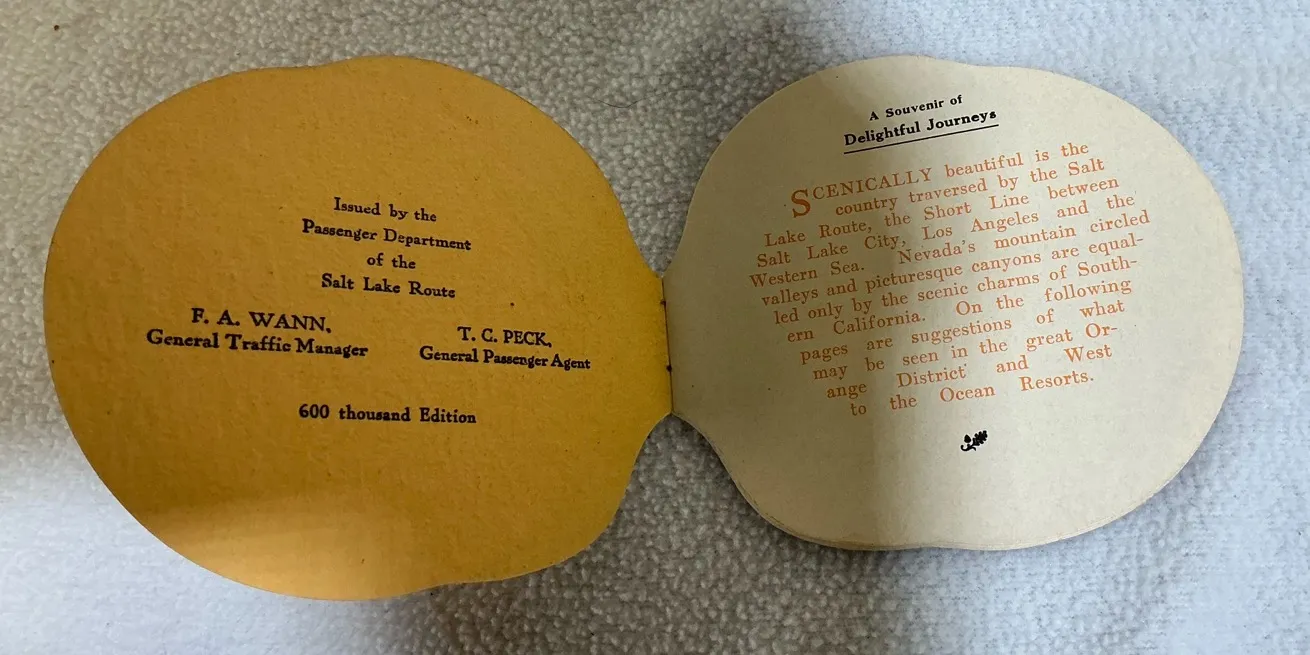 Issued by the
Passenger Department
of the
Salt Lake Route
F. A. WANN,
General Traffic Manager
T. C. PECK,
General Passenger Agent
600 thousand Edition
A Souvenir of
Delightful Journeys
SCENICALLY beautiful is the
country traversed by the Salt
Lake Route, the Short Line between
Salt Lake City, Los Angeles and the
Western Sea. Nevada's mountain circled
valleys and picturesque canyons are equal-
led only by the scenic charms of South-
ern California. On the following
pages are suggestions of what
may be seen in the great Or-
ange District and West
to the Ocean Resorts.